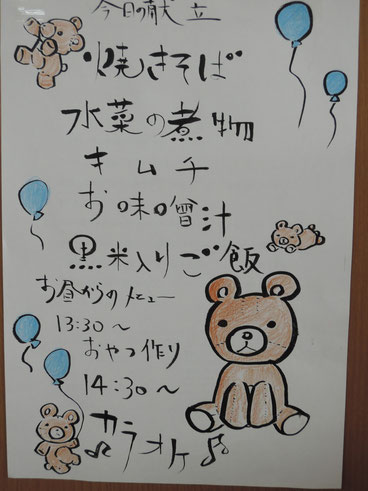 今日の献立
焼きそば
水菜の煮物
キムチ
お味噌汁
黒米入りご飯
お昼からのメニュー
13:30～
おやつ作り
14:30～
♫カラオケ♫